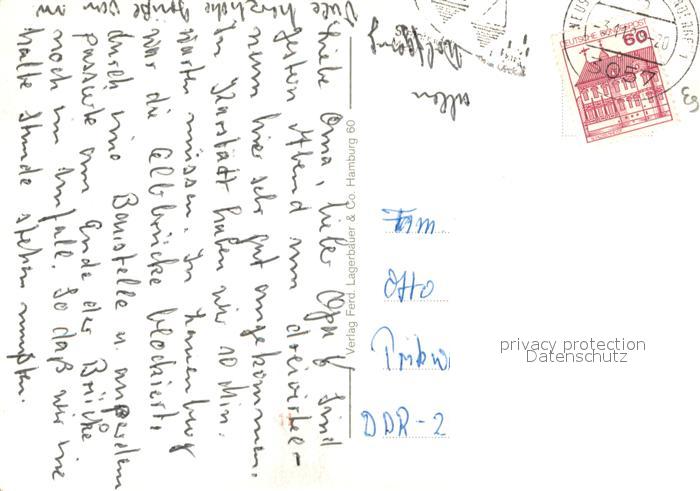 Liebe Oma, lieber Opa! Sind
gestern Abend um dreiviertel-
neun hier sehr gut angekommen.
In haben wir 10 Min.
warten müssen. In Lauenburg
war die Elbbrücke blockiert,
durch eine Baustelle u. außerdem
passierte am Ende der Brücke
noch ein Unfall. So daß wir eine
halbe Stunde stehen mußten.
Viele herzliche Grüße von
allen
Wolfgang
Verlag Ferd. Lagerbauer & Co. Hamburg 60
DEUTSCHE BUNDESPOST
60
3057
Fam.
Otto
DDR-2
privacy protection
Datenschutz